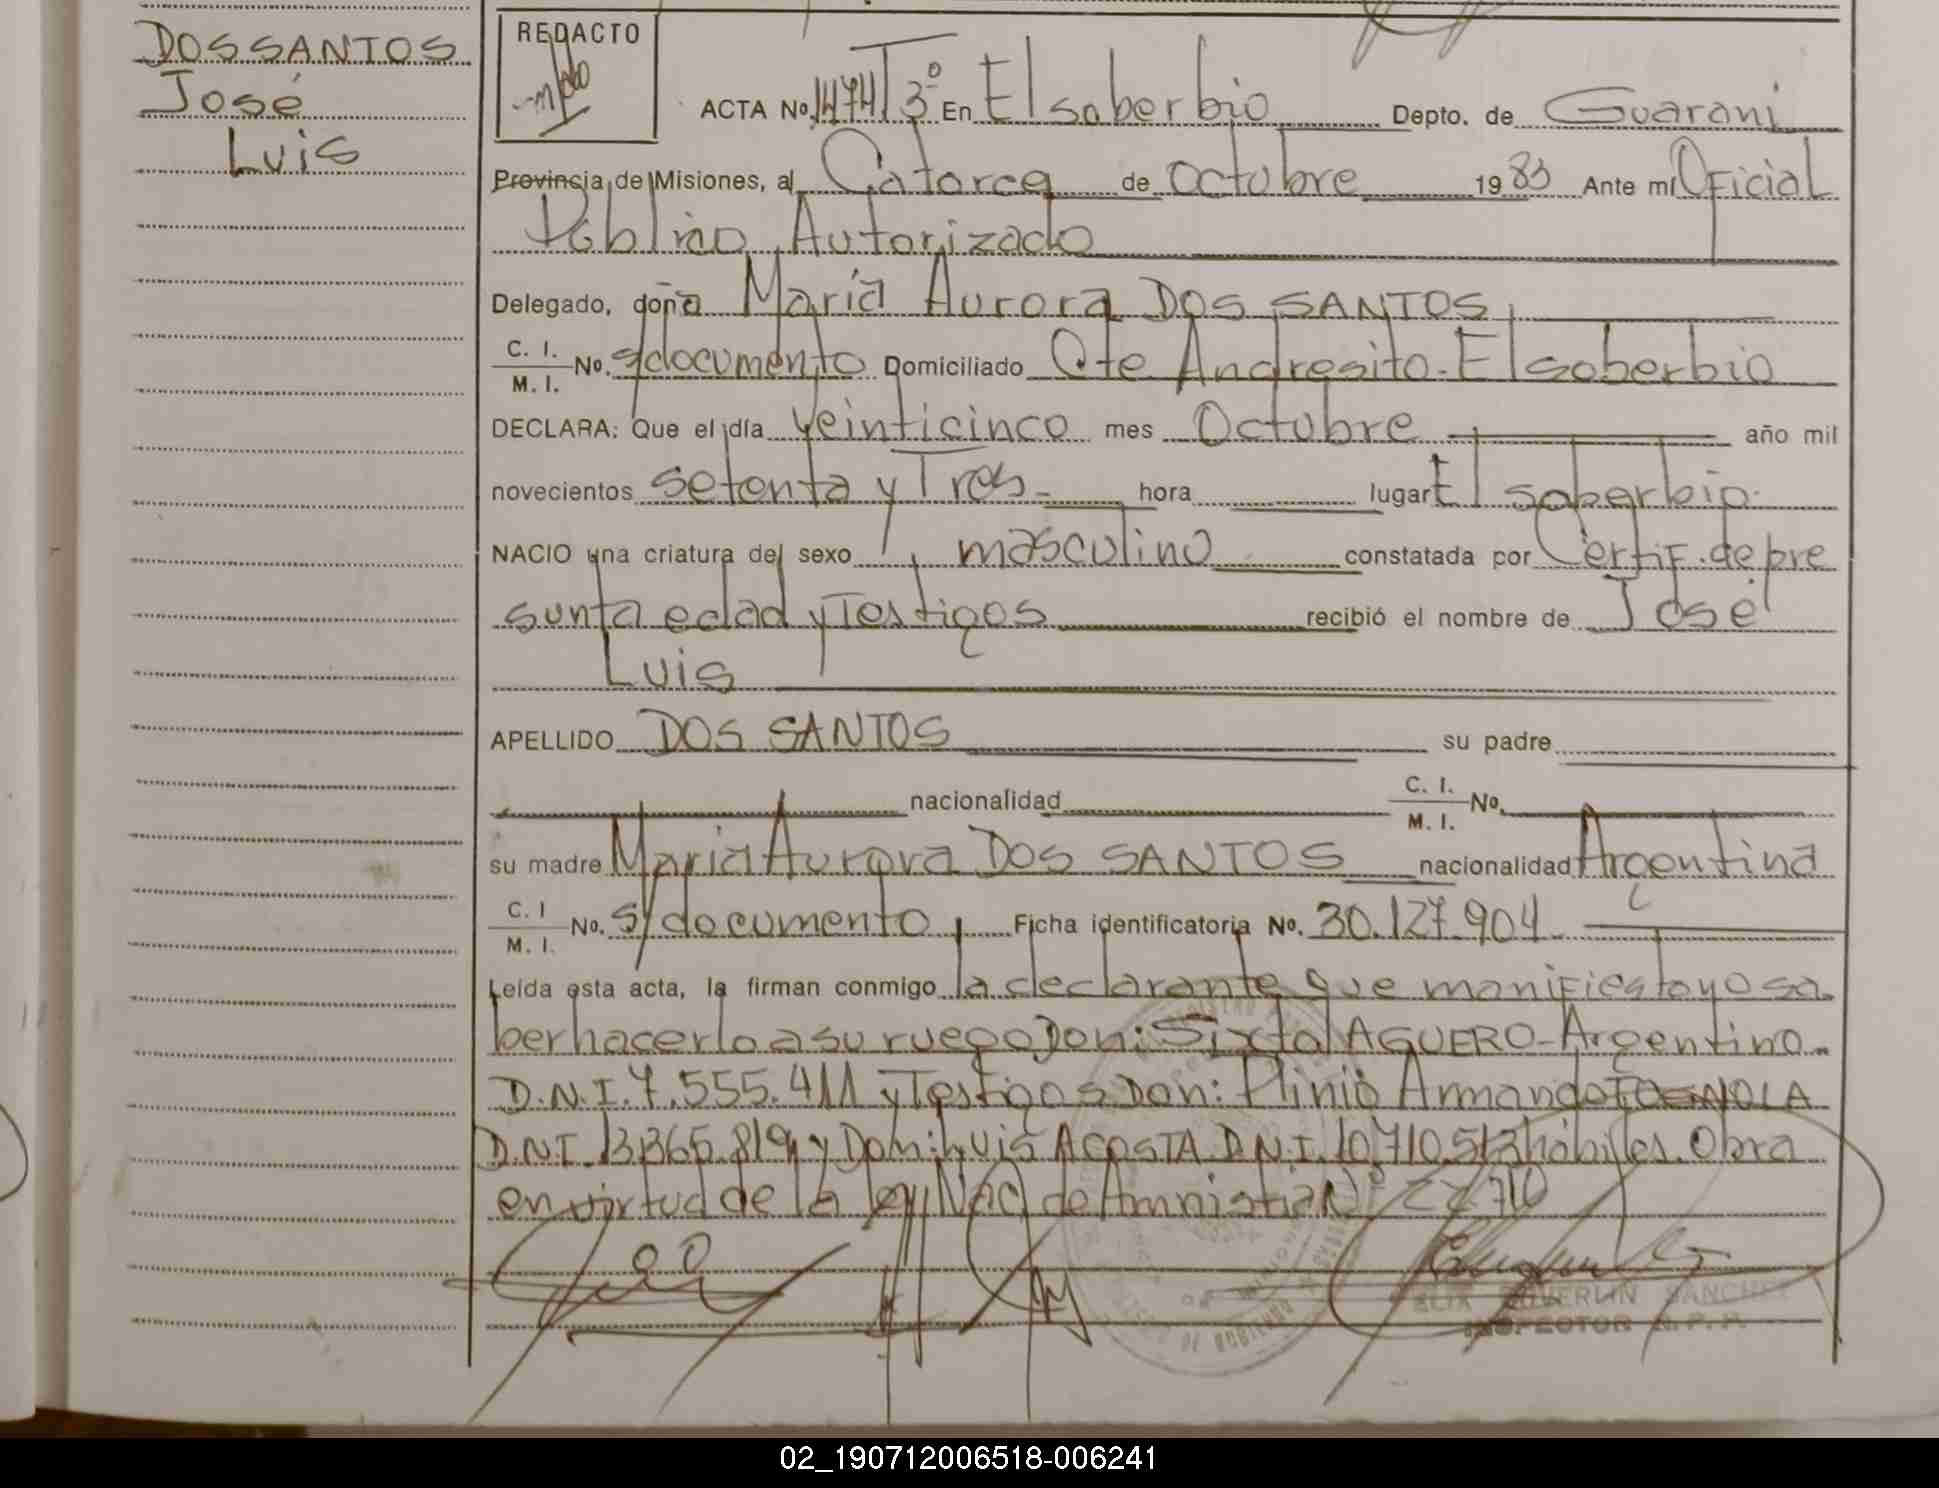 DOS SANTOS
José
Luis
REDACTO
ACTA No. 1474 T 3º En El soberbio Depto. de Guarani
Provincia de Misiones, al Catorce de octubre 1983 Ante mi Oficial
Público Autorizado
Delegado, doña Maria Aurora DOS SANTOS,
C. I.
M. I. No. s/documento Domiciliado Cte Andresito. El soberbio
DECLARA: Que el día veinticinco mes Octubre año mil
novecientos setenta y Tres hora lugar El soberbio.
NACIO una criatura del sexo masculino constatada por Certif. de pre
sunta edad y Testigos recibió el nombre de José
Luis
APELLIDO DOS SANTOS su padre
nacionalidad C. I.
M. I. No.
su madre Maria Aurora DOS SANTOS nacionalidad Argentina
C. I
M. I. No. s/documento, Ficha identificatoria No. 30.127.904
Leída esta acta, la firman conmigo la declarante que manifiesto yo sa
ber hacerlo a su ruego Don: Sixto AGUERO-Argentino.
D.N.I. 7.555.411 y Testigos Don: Plinio Armando
D.N.I. 13.365.819 y Don: Luis ACOSTA D.N.I. 10.710.513 hábiles. Obra
en virtud de la Ley Nac. de Amnistia Nº 22710
SANCHEZ
INSPECTOR R. P. P.
02_190712006518-006241